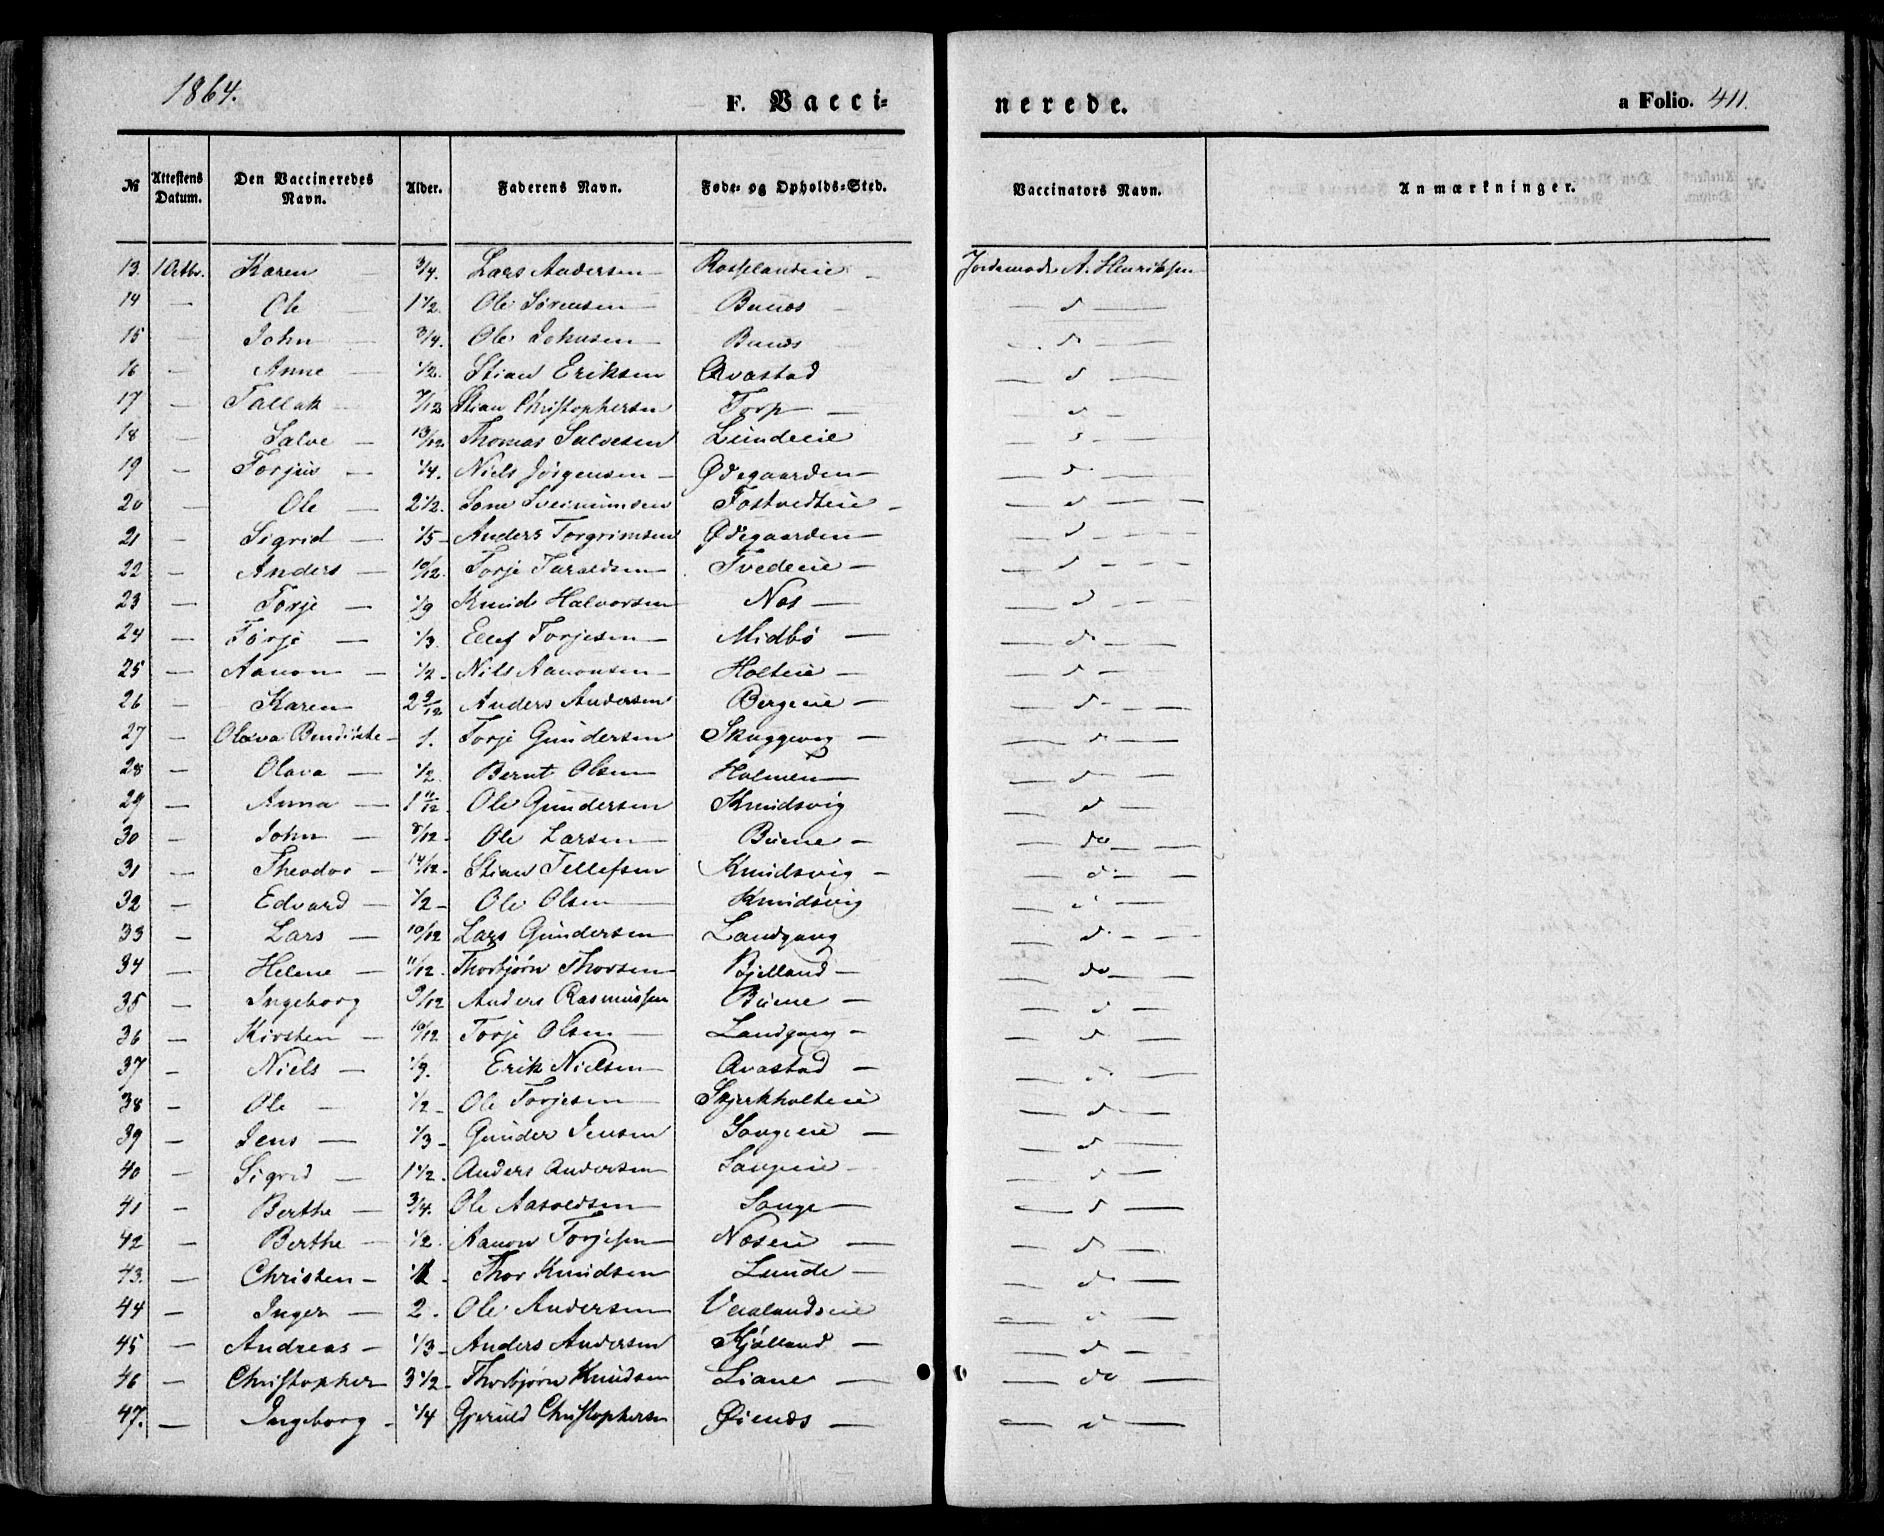 1864. F. Vacci= nerede. a Folio. 411.
№ Attestens Datum. Den Vaccineredes Navn. Alder. Faderens Navn. Føde= og Opholds=Sted. Vaccinators Navn. Anmærkninger.
13. 1 Octbr. Karen — 3/4. Lars Andersen — Rosselandeie — Jordemoder A. Henriksen
14 — Ole — 1 1/2. Ole Sørensen — Buenes — d —
15 — John — 3/4. Ole Johnsen — — d —
16 — Anne — 1/2. Stian Eriksen Qvastad — d —
17 — Tallak — 7/12 Stian Christophersen Torp — — d —
18 — Salve — 13/12. Thomas Salvesen Lundeeie — d —
19 — Torjus — 1/4. Niels Jørgensen — Ødegaarden — — d —
20 — Ole — 2 1/2. Sveinumsen Tostvedteie — — d —
21 — Sigrid — 1/5 — Anders Torgrimsen Ødegaarden — — d —
22 — Anders — 10/12. Torje Taraldsen — Tvedeeie — — d —
23 — Torje — 1/9 Knud Halvorsen Næs — — d —
24 — Torje — 1/3. Ellef Torjesen — Midbö — — d —
25 — Aanon — 1/2 — Nils Aanonsen — Holteie — — d —
26 — Karen 2 9/12 Anders Andersen Bergeie — — d —
27 — Olava Bendikke — 1. Torje Gundersen Skuggevig — — d —
28 — Olava — 1/2. Bernt Olsen — Holmen — — d —
29 — Anna — 1 11/12. Ole Gundersen Knudsvig — d —
30 — John — 8/12 — Ole Larsen — Buene — — do —
31 — Theodor — 14/12. Stian Tellefsen Knudsvig — — d —
32 — Edvard — 1/2 — Ole Olsen — Knudsvig — d —
33 — Lars — 10/12 Lars Gundersen Landgang — d —
34 — Helene — 11/12. Thorbjørn Thorsen Bjelland — — do —
35 — Ingeborg 9/12 Anders Rasmussen Buene — — d —
36 — Kirsten — 10/12 Torje Olsen — Landgang — — d —
37 — Niels — 1/9. Erik Nielsen — Qvastad — — d —
38 — Ole — 1/2 — Ole Torjesen — Skjerkholteie — d —
39 — Jens — 1/3 — Gunder Jensen Songeeie — — d —
40 — Sigrid — 1 1/2. Anders Andersen Songeeie — — d —
41 — Berthe — 3/4. Ole Aasoldsen Songe — — d —
42 — Berthe — 1/2. Aanon Torjesen — Næseie — — d —
43. — Christen — Thor Knudsen Lunde — — d —
44 — Inger — 2. Ole Andersen Vealandseie — d —
45 — Andreas — 1/3 — Anders Andersen Kjølland — — d —
46 — Christopher 3 1/2 — Thorbjørn Knudsen Liane — — do —
47. — Ingeborg — 1/4 Gjeruld Christophersen Øienæs — — d —